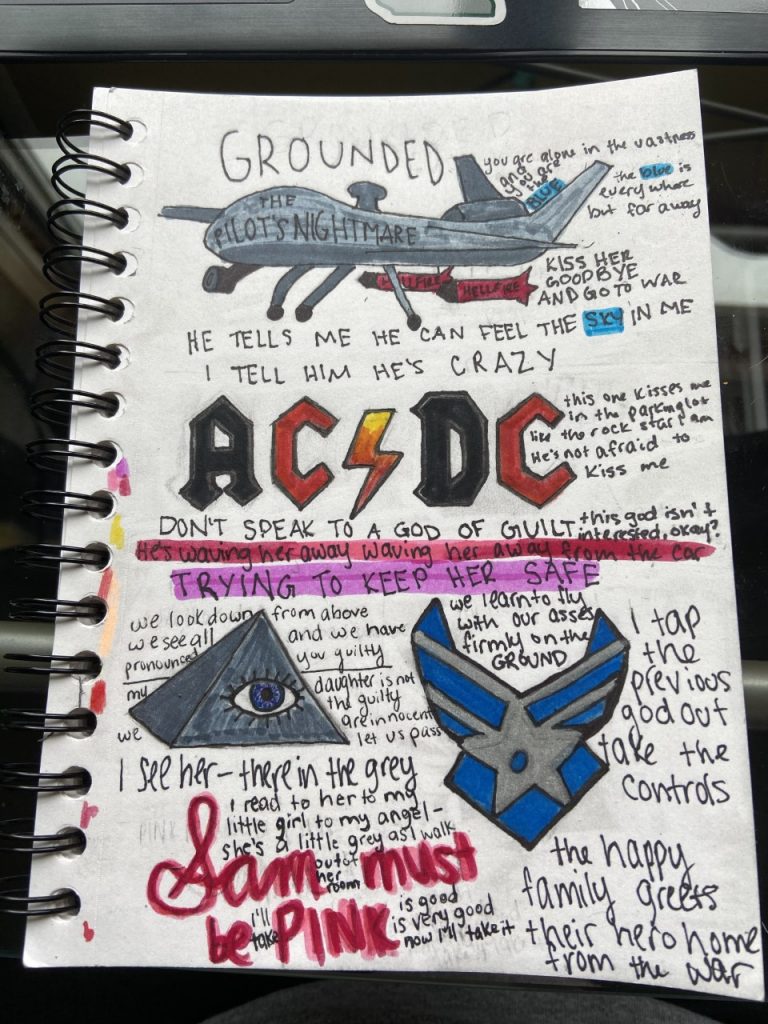 GROUNDED
you are alone in the vastness
and
you are
the
BLUE
the blue is
everywhere
but far away
THE
PILOT'S NIGHTMARE
HELLFIRE
HELLFIRE
KISS HER
GOODBYE
AND GO TO WAR
HE TELLS ME HE CAN FEEL THE SKY IN ME
I TELL HIM HE'S CRAZY
AC DC
this one kisses me
in the parking lot
like the rock star I am
He's not afraid to
kiss me
DON'T SPEAK TO A GOD OF GUILT
this god isn't
interested, okay?
He's waving her away waving her away from the car
TRYING TO KEEP HER SAFE
we look down from above
we see all and we have
pronounced you guilty
my daughter is not
the guilty
we are innocent
let us pass
we learn to fly
with our asses
firmly on the
GROUND
I tap
the
previous
god out
take the
controls
I see her - there in the grey
I read to her to my
little girl to my angel -
she's a little grey as I walk
out of
her
room
Sam must
be PINK
I'll
take
is good
is very good
now I'll take it
the happy
family greets
their hero home
from the war